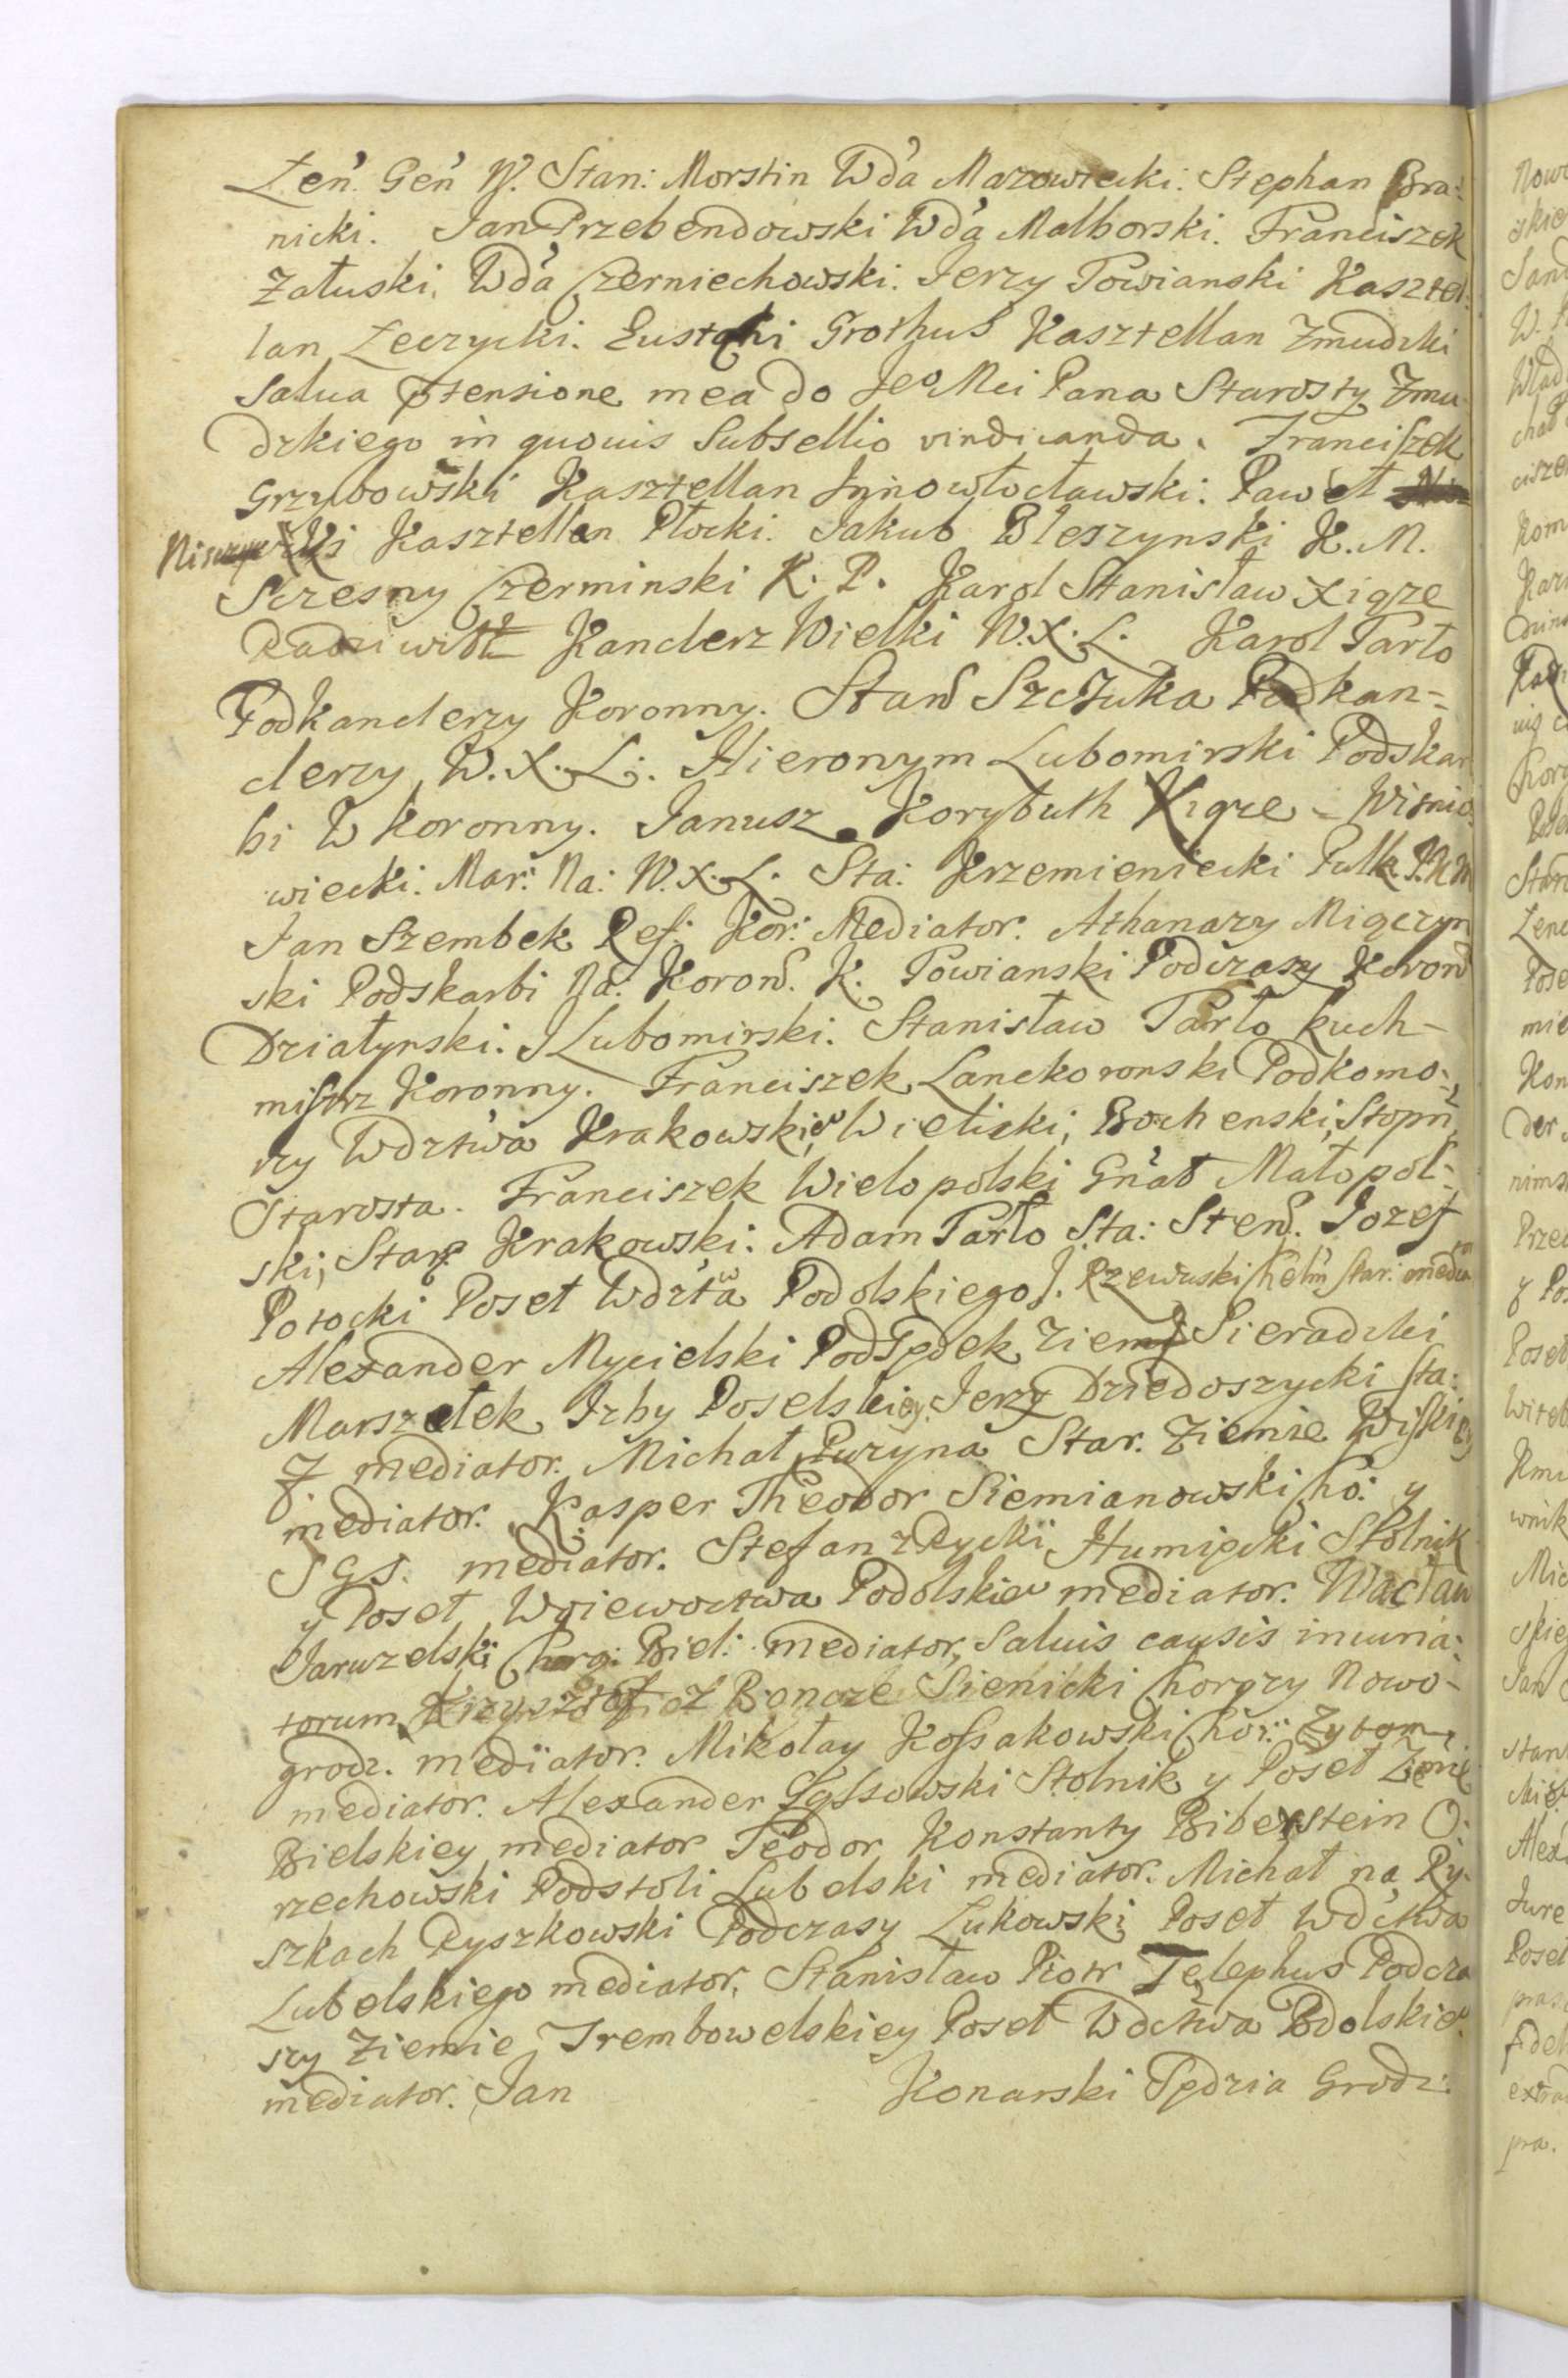 Łeń. Geń W. Stan: Morstin Wda Mazowiecki. Stephan Bra-
nicki. Jan Przebendowski Wda Malborski. Franciszek
Załuski, Wda Czerniechowski. Jerzy Towianski Kasztel-
lan Łeczycki. Eustachi Grothus Kasztellan Zmudzki
Salua ptensione mea do Jeo Mci Pana Starosty Zmu-
dzkiego in quouis Subsellio vindicanda. Franciszek
Grzybowski Kasztellan Innowłocławski. Paweł
Kasztellan Płocki. Jakub Bleszynski K. M.
Sczesny Czerminski K. P. Karol Stanisław Xiąze
Radziwiłł Kanclerz Wielki W.X.L. Karol Tarło
Podkanclerzy Koronny. Stan Szczuka Podkan-
clerzy W.X.L. Hieronym Lubomirski Podskar
bi W Koronny. Janusz Korybuth Xiąze Wisnio-
wiecki. Mar: Na: W.X.L. Sta: Krzemieniecki Pułk. J.K.M
Jan Szembek Ref: Kor: Mediator. Athanazy Miączyn
ski Podskarbi Na: Koron. K. Towianski Podczaszy Koron
Działynski. J Lubomirski. Stanisław Tarło kuch-
mistrz Koronny. Franciszek Lanckoronski Podkomo-
rzy Wdztwa Krakowskieo Wielicki, Bochenski, Stopn
Starosta. Franciszek Wielopolski Gnał Małopol-
ski, Star Krakowski. Adam Tarło Sta: Sten. Jozef
Potocki Poseł Wdztwa Podolskiego. J. Rzewuski Chełm Star: media
Alexander Mycielski Podsędek Ziemi Sieradzki
Marszałek Izby Poselskiey. Jerzy Dziedoszycki Sta:
Z. mediator. Michał Puzyna Star. Ziemie Wiskiey
mediator. Kasper Theodor Siemianowski Cho: y
S G S. mediator. Stefan z Rycht Humięcki Stolnik
y Poseł Woiewoctwa Podolskieo mediator. Wacław
Jaruzelski Chorą: Biel: mediator, Saluis causis iniuria-
torum, Krzysztof z Boncze Sienicki Chorązy Nowo-
grodz. mediator. Mikołay Kossakowski Chor: Zytom
mediator. Alexander Łyssowski Stolnik y Poseł Ziemie
Bielskiey mediator Teodor Konstanty Biberstein O-
rzechowski Podstoli Lubelski mediator. Michał na Ry-
szkach Ryszkowski Podczasy Łukowski Poseł Wdctwa
Lubelskiego mediator, Stanisław Piotr Telephus Podcza
szy Ziemie Trembowelskiey Poseł Wdctwa Podolskieo
mediator. Jan Konarski Sędzia Grodz: